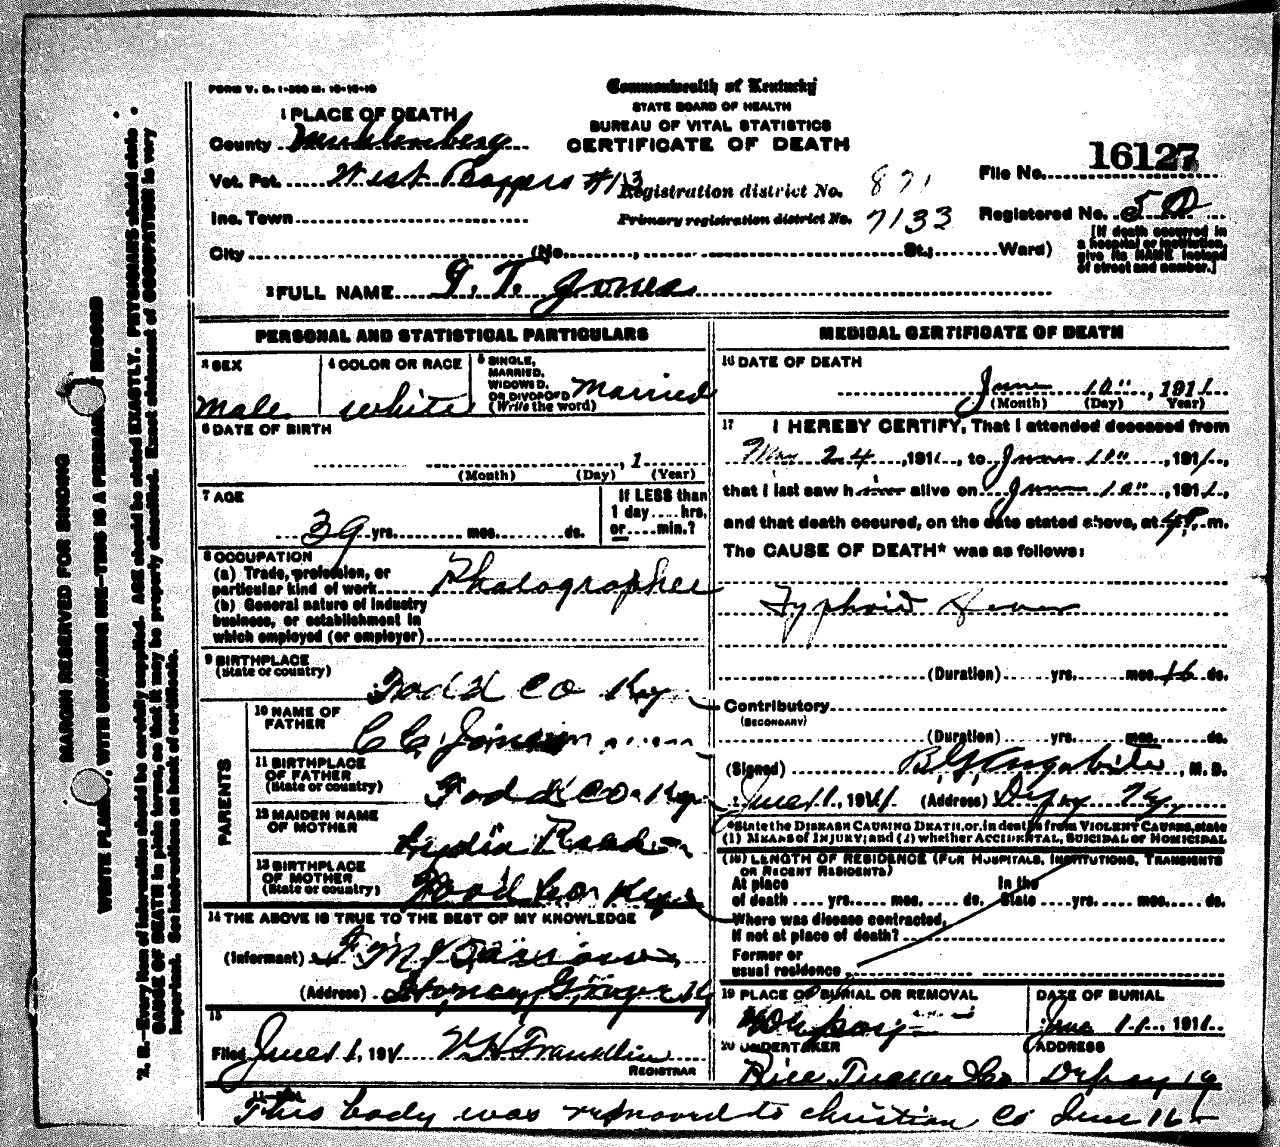 FORM V. S. 1-
Commonwealth of Kentucky
STATE BOARD OF HEALTH
BUREAU OF VITAL STATISTICS
CERTIFICATE OF DEATH
1 PLACE OF DEATH
County Muhlenberg
Vot. Pct. West #13
Inc. Town
City (No. St.; Ward)
Registration district No. 871
Primary registration district No. 7133
File No. 16127
Registered No. 50
[If death occurred in a hospital or institution, give its NAME instead of street and number.]
2 FULL NAME G. T. Jones
PERSONAL AND STATISTICAL PARTICULARS
3 SEX
Male
4 COLOR OR RACE
white
5 SINGLE, MARRIED, WIDOWED, OR DIVORCED (Write the word)
Married
6 DATE OF BIRTH
, 1
(Month) (Day) (Year)
7 AGE
39 yrs. mos. ds.
If LESS than 1 day .... hrs. or .... min.?
8 OCCUPATION
(a) Trade, profession, or particular kind of work Photographer
(b) General nature of industry business, or establishment in which employed (or employer)
9 BIRTHPLACE (State or country)
Todd Co Ky
PARENTS
10 NAME OF FATHER
C C
11 BIRTHPLACE OF FATHER (State or country)
Todd Co Ky
12 MAIDEN NAME OF MOTHER
Lydia
13 BIRTHPLACE OF MOTHER (State or country)
Todd Co Ky
14 THE ABOVE IS TRUE TO THE BEST OF MY KNOWLEDGE
(Informant)
(Address)
15
Filed June 11, 1911 Franklin
REGISTRAR
MEDICAL CERTIFICATE OF DEATH
16 DATE OF DEATH
June 10", 1911
(Month) (Day) (Year)
17 I HEREBY CERTIFY, That I attended deceased from
24, 1911, to June 10", 1911,
that I last saw him alive on June 10", 1911,
and that death occured, on the date stated above, at m.
The CAUSE OF DEATH* was as follows:
Typhoid Fever
(Duration) yrs. mos. 16 ds.
Contributory
(SECONDARY)
(Duration) yrs. mos. ds.
(Signed) , M. D.
June 11, 1911 (Address) Depoy Ky,
*State the DISEASE CAUSING DEATH, or, in deaths from VIOLENT CAUSES, state
(1) MEANS of INJURY; and (2) whether ACCIDENTAL, SUICIDAL or HOMICIDAL
(18) LENGTH OF RESIDENCE (FOR HOSPITALS, INSTITUTIONS, TRANSIENTS OR RECENT RESIDENTS)
At place of death yrs. mos. ds. In the State yrs. mos. ds.
Where was disease contracted, If not at place of death?
Former or usual residence
19 PLACE OF BURIAL OR REMOVAL
DATE OF BURIAL
June 11, 1911
20 UNDERTAKER
Rice Tucker Co
ADDRESS
Depoy Ky
This body was removed to christian Co June 16
MARGIN RESERVED FOR BINDING
WRITE PLAINLY, WITH UNFADING INK—THIS IS A PERMANENT RECORD
N. B.—Every item of information should be carefully supplied. AGE should be stated EXACTLY. PHYSICIANS should state
CAUSE OF DEATH in plain terms, so that it may be properly classified. Exact statement of OCCUPATION is very
important. See instructions on back of certificate.